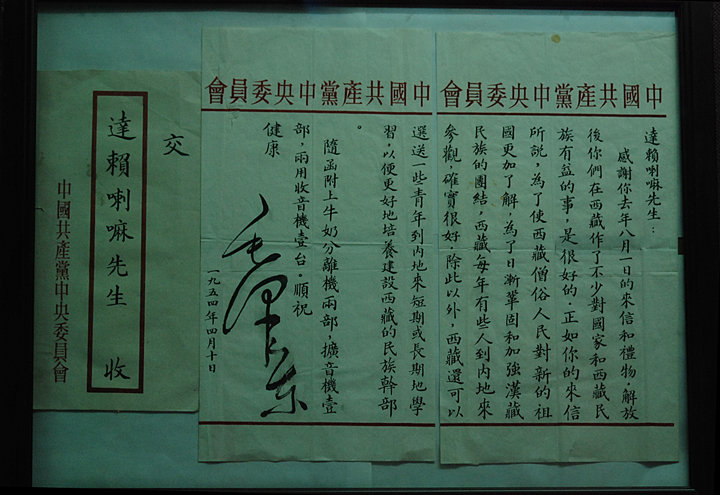 中國共產黨中央委員會
達賴喇嘛先生：
感謝你去年八月一日的來信和禮物．解放
後你們在西藏作了不少對國家和西藏民
族有益的事，是很好的．正如你的來信
所説，為了使西藏僧俗人民對新的祖
國更加了解，為了日漸鞏固和加強漢藏
民族的團結，西藏每年有些人到內地來
參觀，確實很好．除此以外，西藏還可以
中國共產黨中央委員會
選送一些青年到內地來短期或長期地學
習，以便更好地培養建設西藏的民族幹部
。
隨函附上牛奶分離機兩部，擴音機壹
部，兩用收音機壹台。順祝
健康
毛澤東
一九五四年四月十日
交
達賴喇嘛先生 收
中國共產黨中央委員會